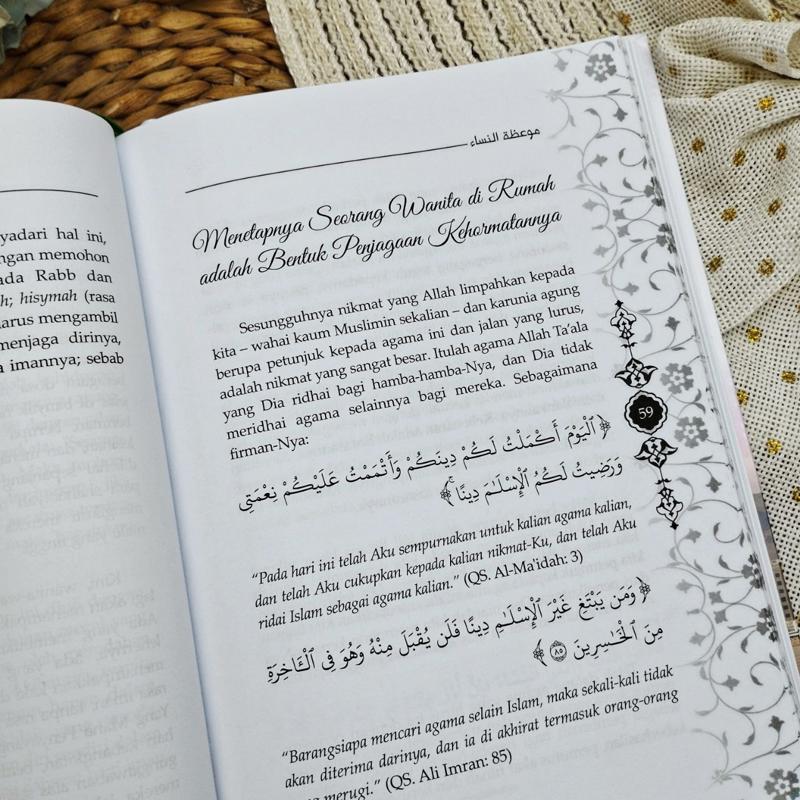 yadari hal ini,
ngan memohon
ada Rabb dan
h; hisymah (rasa
arus mengambil
menjaga dirinya,
a imannya; sebab
موعظة النساء
Menetapnya Seorang Wanita di Rumah
adalah Bentuk Penjagaan Kehormatannya
Sesungguhnya nikmat yang Allah limpahkan kepada
kita – wahai kaum Muslimin sekalian – dan karunia agung
berupa petunjuk kepada agama ini dan jalan yang lurus,
adalah nikmat yang sangat besar. Itulah agama Allah Ta'ala
yang Dia ridhai bagi hamba-hamba-Nya, dan Dia tidak
meridhai agama selainnya bagi mereka. Sebagaimana
firman-Nya:
﴿ ٱلْيَوْمَ أَكْمَلْتُ لَكُمْ دِينَكُمْ وَأَتْمَمْتُ عَلَيْكُمْ نِعْمَتِى
وَرَضِيتُ لَكُمُ ٱلْإِسْلَـٰمَ دِينًا ۚ ﴾
59
“Pada hari ini telah Aku sempurnakan untuk kalian agama kalian,
dan telah Aku cukupkan kepada kalian nikmat-Ku, dan telah Aku
ridai Islam sebagai agama kalian.” (QS. Al-Ma'idah: 3)
﴿ وَمَن يَبْتَغِ غَيْرَ ٱلْإِسْلَـٰمِ دِينًا فَلَن يُقْبَلَ مِنْهُ وَهُوَ فِى ٱلْـَٔاخِرَةِ
مِنَ ٱلْخَـٰسِرِينَ ٨٥ ﴾
“Barangsiapa mencari agama selain Islam, maka sekali-kali tidak
akan diterima darinya, dan ia di akhirat termasuk orang-orang
merugi.” (QS. Ali Imran: 85)